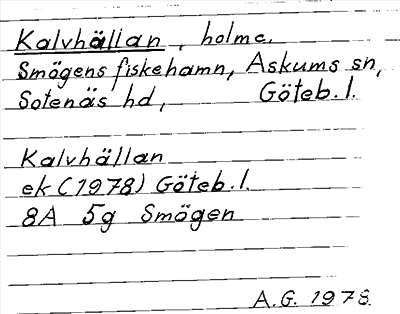 Kalvhällan, holme.
Smögens fiskehamn, Askums sn,
Sotenäs hd, Göteb. l.
Kalvhällan
ek (1978) Göteb. l.
8A 5g Smögen
A.G. 1978.